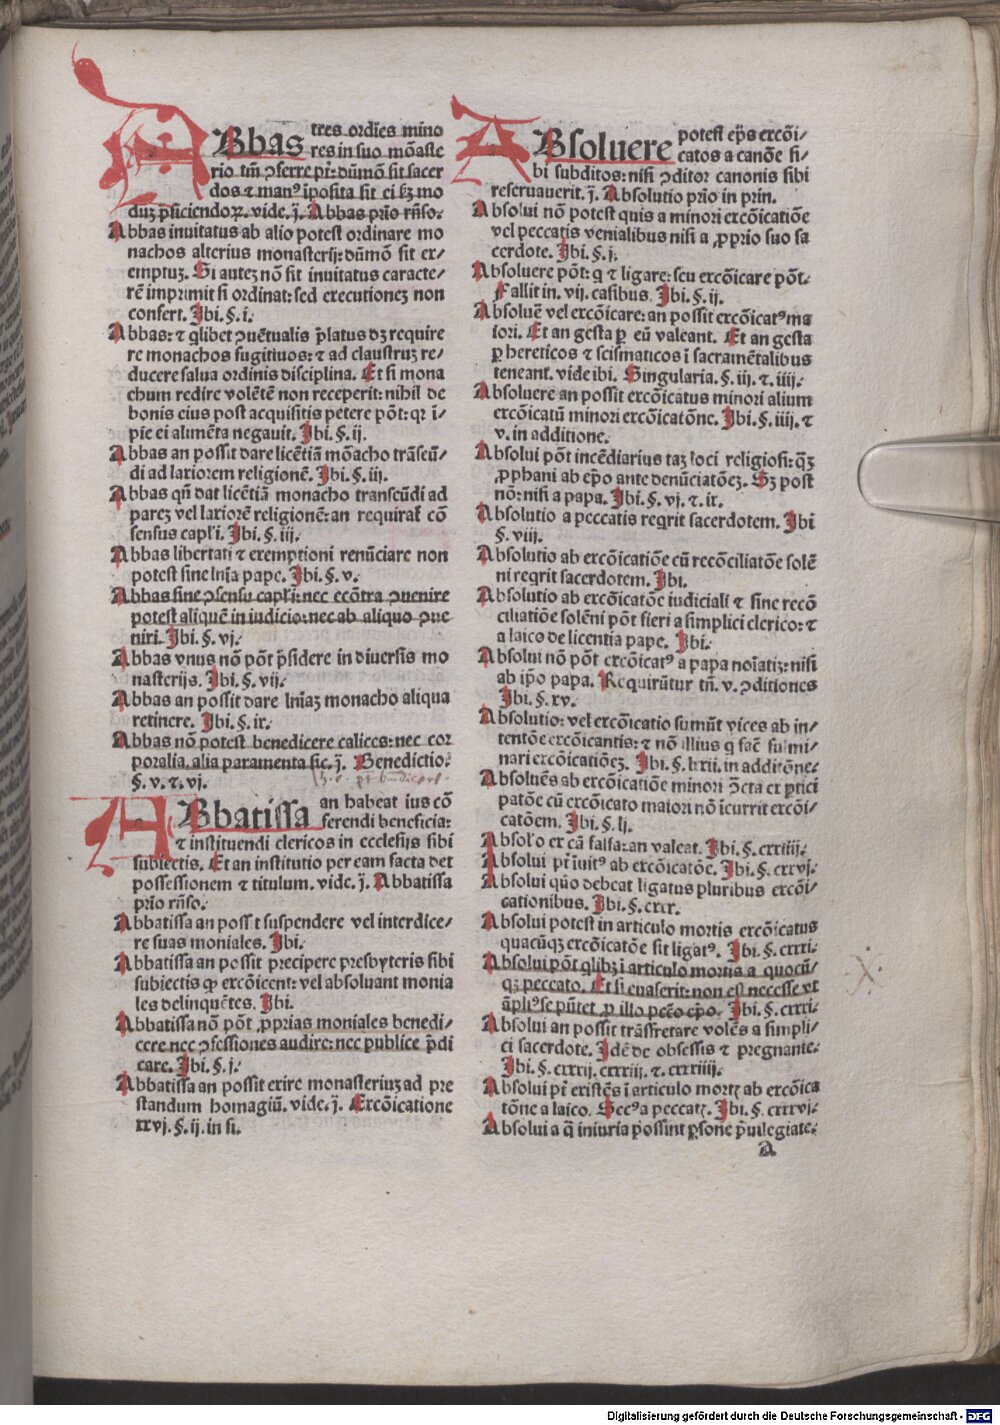 ABbas tres ordīes mino
res in suo mōaste
rio tm̄ ꝯferre pt̄: dūmō sit sacer
dos ⁊ manꝰ īposita sit ei ẜm mo
duꝫ p̄siciendoꝝ. vide. j̄. Abbas prīo rn̄so.
Abbas inuitatus ab alio potest ordinare mo
nachos alterius monasterij: dūmō sit ex/
emptuꝫ. Si auteꝫ nō sit inuitatus caracte/
rē imprimit si ordinat: sed executioneꝫ non
confert. Ibi. §. i.
Abbas: ⁊ q̄libet ꝯuētualis p̄latus dꝫ require
re monachos fugitiuos: ⁊ ad claustruꝫ re/
ducere salua ordinis disciplina. Et si mona
chum redire volētē non receperit: nihil de
bonis eius post acquisitis petere pōt: qr ī/
pie ei alimēta negauit. Ibi. §. ij.
Abbas an possit dare licētiā mōacho trāscū/
di ad laxiorem religionē. Ibi. §. iij.
Abbas qn̄ dat licētiā monacho transcūdi ad
pareꝫ vel laxiorē religionē: an requirat̄ cō
sensus capl'i. Ibi. §. iij.
Abbas libertati ⁊ exemptioni renūciare non
potest sine lnīa pape. Ibi. §. v.
Abbas sine ꝯsensu capl'i: nec ecōtra ꝯuenire
potest aliquē in iudicio: nec ab aliquo ꝯue
niri. Ibi. §. vj.
Abbas vnus nō pōt p̄sidere in diuersis mo
nasterijs. Ibi. §. vij.
Abbas an possit dare lnīaꝫ monacho aliqua
retinere. Ibi. §. ix.
Abbas nō potest benedicere calices: nec cor
poralia. alia paramenta sic. j̄. Benedictio.
§. v. ⁊. vj.
ABbatissa an habeat ius cō
ferendi beneficia:
⁊ instituendi clericos in ecclesijs sibi
subiectis. Et an institutio per eam facta det
possessionem ⁊ titulum. vide. j̄. Abbatissa
prīo rn̄so.
Abbatissa an possit suspendere vel interdice/
re suas moniales. Ibi.
Abbatissa an possit precipere presbyteris sibi
subiectis ꝙ excōicent: vel absoluant monia
les delinquētes. Ibi.
Abbatissa nō pōt ꝓprias moniales benedi/
cere nec ꝯfessiones audire: nec publice p̄di
care. Ibi. §. j.
Abbatissa an possit exire monasteriuꝫ ad pre
standum homagiū. vide. j̄. Excōicatione
xxvj. §. ij. in fi.
ABsoluere potest ep̄s excōi/
catos a canōe si/
bi subditos: nisi ꝯditor canonis sibi
reseruauerit. j̄. Absolutio prīo in prin.
Absolui nō potest quis a minori excōicatiōe
vel peccatis venialibus nisi a ꝓprio suo sa
cerdote. Ibi. §. j.
Absoluere pōt: q ⁊ ligare: seu excōicare pōt.
Fallit in. vij. casibus. Ibi. §. ij.
Absoluē vel excōicare: an possit excōicatꝰ ma
iori. Et an gesta ꝑ eū valeant. Et an gesta
ꝑ hereticos ⁊ scismaticos ī sacramētalibus
teneant. vide ibi. Singularia. §. iij. ⁊. iiij.
Absoluere an possit excōicatus minori alium
excōicatū minori excōicatōne. Ibi. §. iiij. ⁊
v. in additione.
Absolui pōt incēdiarius taꝫ loci religiosi: qꝫ
ꝓphani ab ep̄o ante denūciatōeꝫ. Sꝫ post
nō: nisi a papa. Ibi. §. vj. ⁊. ix.
Absolutio a peccatis reqrit sacerdotem. Ibi
§. viij.
Absolutio ab excōicatiōe cū recōciliatōe solē
ni reqrit sacerdotem. Ibi.
Absolutio ab excōicatōe iudiciali ⁊ sine recō
ciliatiōe solēni pōt fieri a simplici clerico: ⁊
a laico de licentia pape. Ibi.
Absolui nō pōt excōicatꝰ a papa noīatiꝫ: nisi
ab ip̄o papa. Requirūtur tn̄. v. ꝯditiones
Ibi. §. xv.
Absolutio: vel excōicatio sumūt vices ab in/
tentōe excōicantis: ⁊ nō illius q fac̄ fulmi/
nari excōicationeꝫ. Ibi. §. lxij. in additōne.
Absoluēs ab excōicatiōe minori ꝯ̄cta ex ptici
patōe cū excōicato maiori nō īcurrit excōi/
catōem. Ibi. §. lj.
Absol'o ex cā falsa: an valeat. Ibi. §. cxxiiij.
Absolui pt̄ īuitꝰ ab excōicatōe. Ibi. §. cxxvj.
Absolui quō debeat ligatus pluribus excōi/
cationibus. Ibi. §. cxxx.
Absolui potest in articulo mortis excōicatus
quacūqꝫ excōicatōe sit ligatꝰ. Ibi. §. cxxxi.
Absolui pōt qlibꝫ ī articulo mortis a quocū/
qꝫ peccato. Et si euaserit: non est necesse vt
 āpliꝰ se pn̄tet ꝑ illo pctō ep̄o. Ibi. §. cxxxi.
Absolui an possit trāsfretare volēs a simpli/
ci sacerdote. Idē de obsessis ⁊ pregnante.
Ibi. §. cxxxij. cxxxiij. ⁊. cxxxiiij.
Absolui pt̄ existēs ī articulo mortꝭ ab excōica
tōne a laico. Secꝰ a peccatꝭ. Ibi. §. cxxxvj.
Absolui a q̄ iniuria possint psone p̄uilegiate.
A
Digitalisierung gefördert durch die Deutsche Forschungsgemeinschaft - DFG